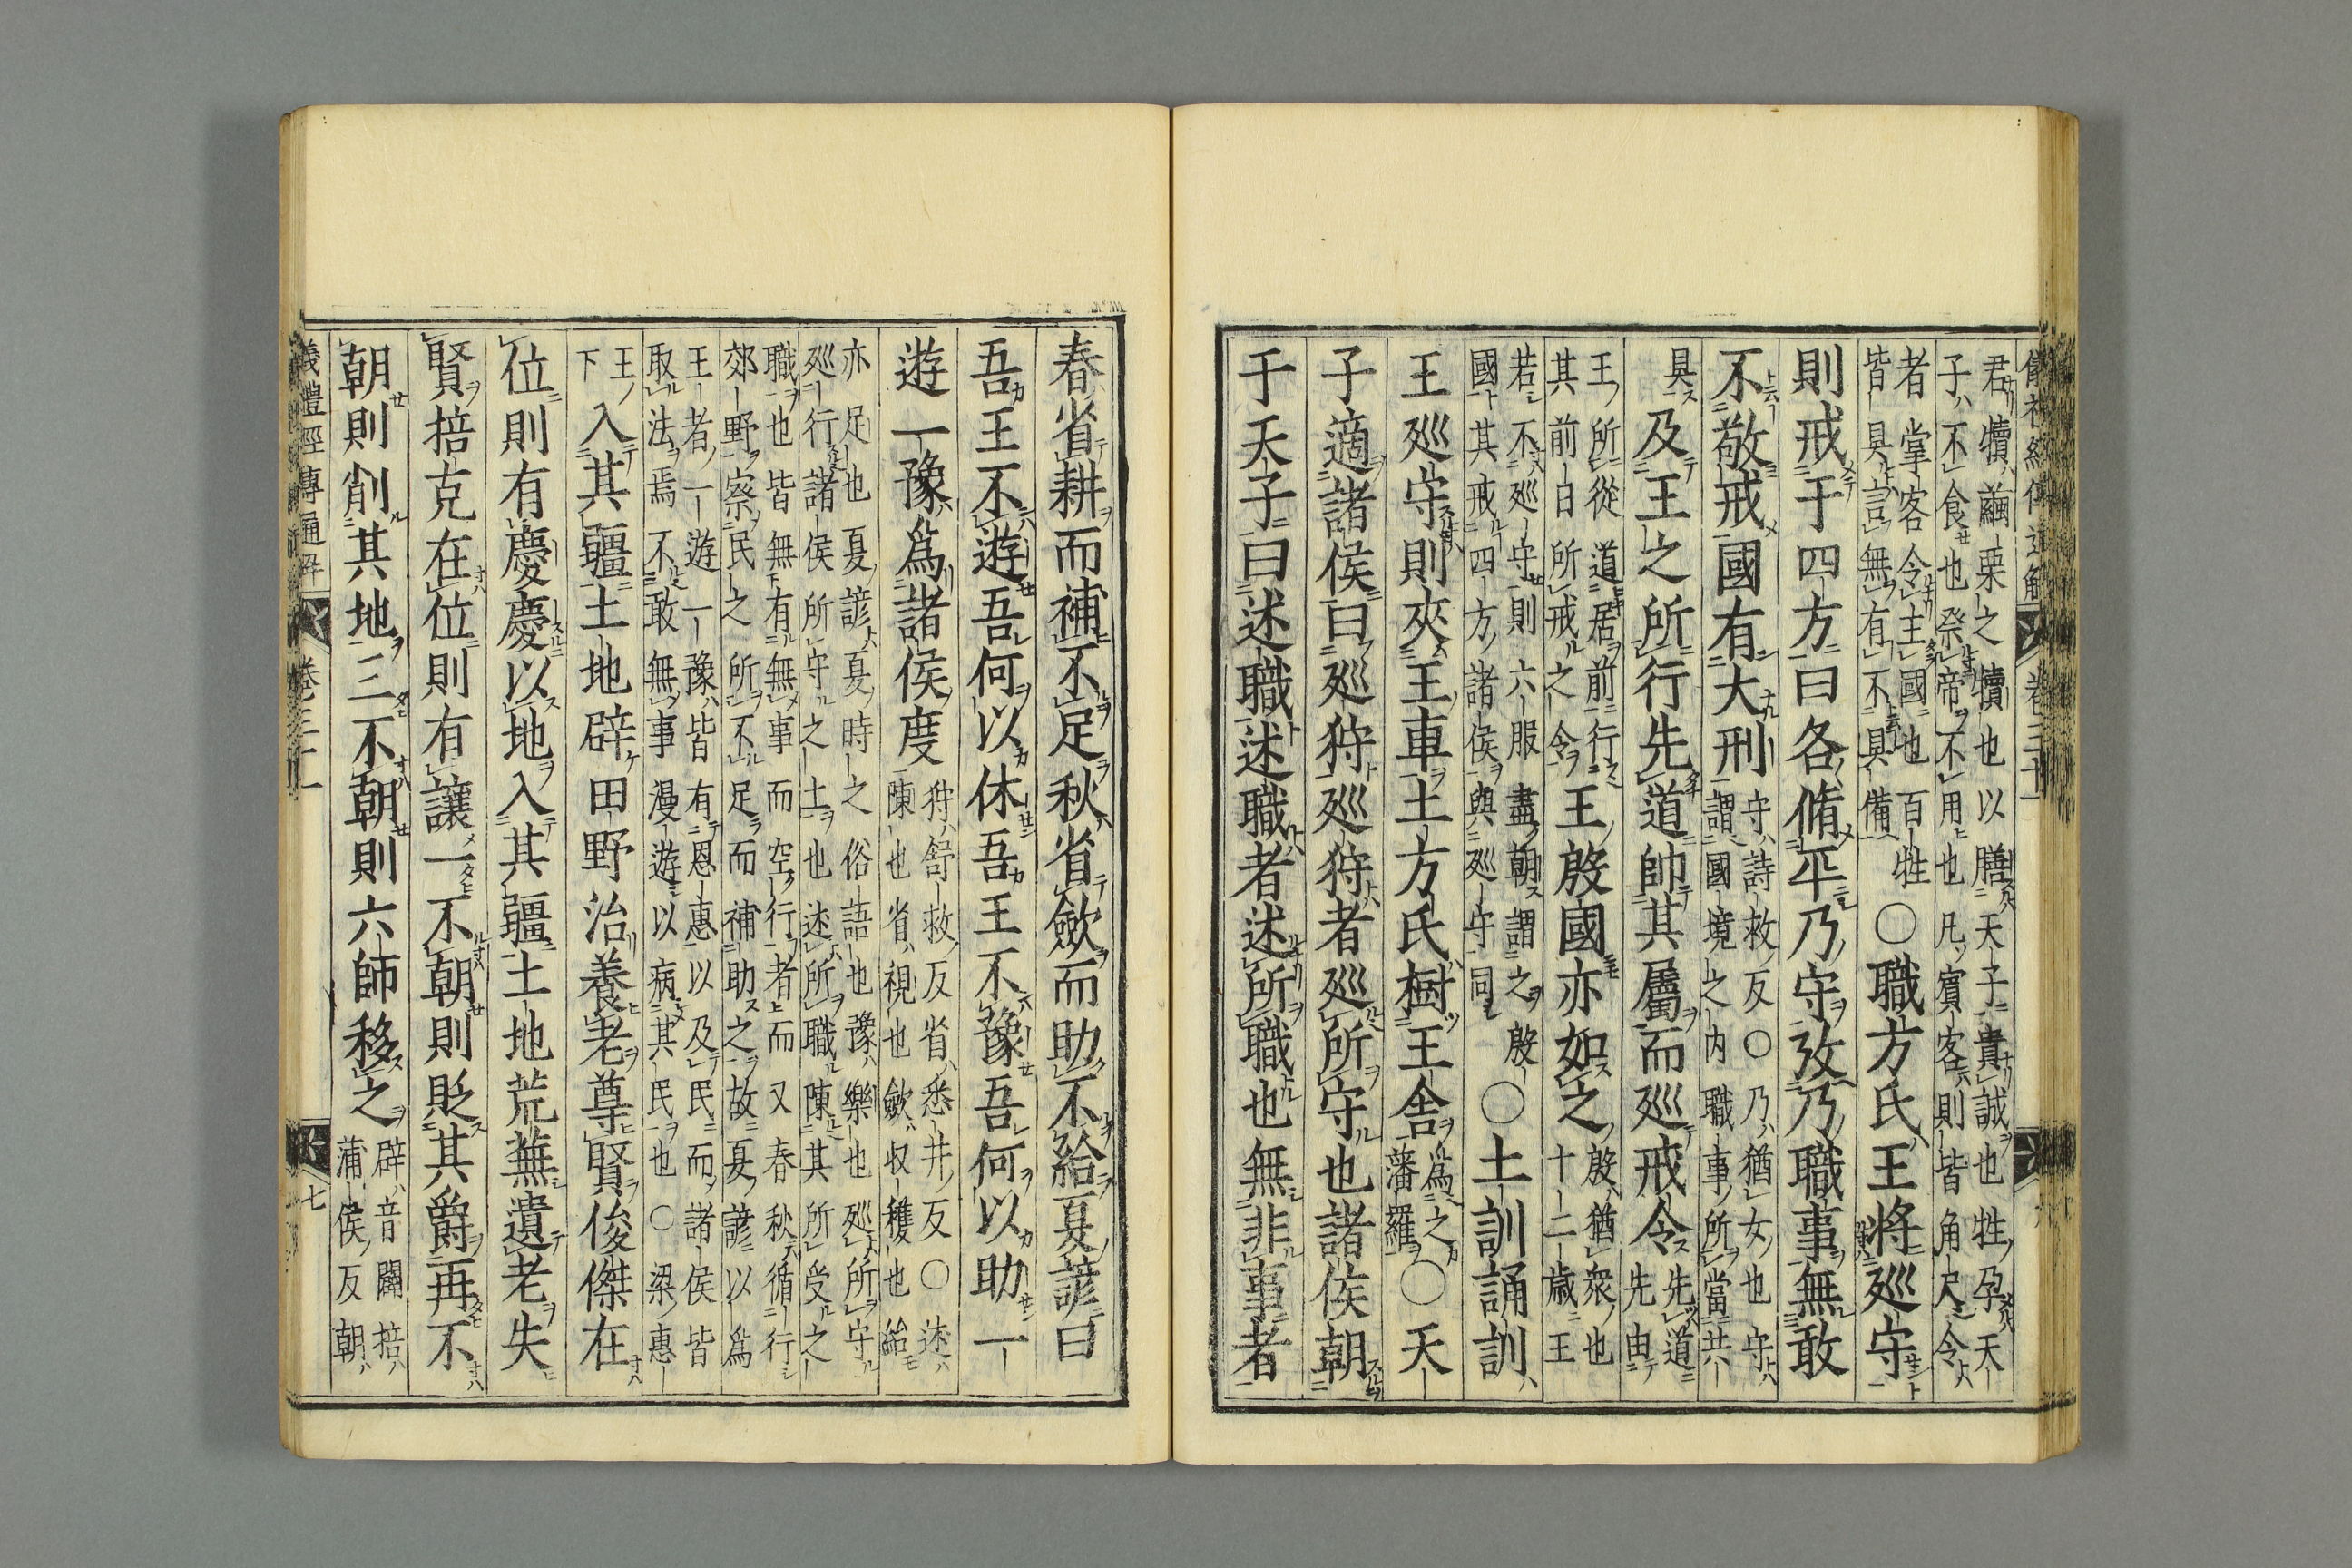 君犢繭栗之犢也以膳天子貴誠也牲孕天
子不食也祭帝不用也凡賓客則皆角尺令
者掌客令主國也百牲
皆具言無有不具備
○職方氏王將廵守
則戒于四方曰各脩平乃守攷乃職事無敢
不敬戒國有大刑
守詩救反○乃猶女也守
謂國境之内職事所當共
具
及王之所行先道帥其屬而廵戒令
先先道
先由
王所從道居前行
其前日所戒之令
王殷國亦如之
殷猶衆也
十二歳王
若不廵守則六服盡朝謂之殷
國其戒四方諸侯與廵守同
○土訓誦訓
王廵守則夾王車土方氏樹王舎
爲之
藩羅
○天
子適諸侯曰廵狩廵狩者廵所守也諸侯朝
于天子曰述職述職者述所職也無非事者
春省耕而補不足秋省斂而助不給夏諺曰
吾王不遊吾何以休吾王不豫吾何以助一
遊一豫爲諸侯度
狩舒救反省悉井反○述
陳也省視也斂収穫也給
亦足也夏諺夏時之俗語也豫樂也廵所守
廵行諸侯所守之土也述所職陳其所受之
職也皆無有無事而空行者而又春秋循行
郊野察民之所不足而補助之故夏諺以爲
王者一遊一豫皆有恩惠以及民而諸侯皆
取法焉不敢無事漫遊以病其民也○梁惠
王
下
入其疆土地辟田野治養老尊賢俊傑在
位則有慶慶以地入其疆土地荒蕪遺老失
賢掊克在位則有讓一不朝則貶其爵再不
朝則削其地三不朝則六師移之
辟音闢掊
蒲侯反朝
義禮經傳通解 卷三十一 七